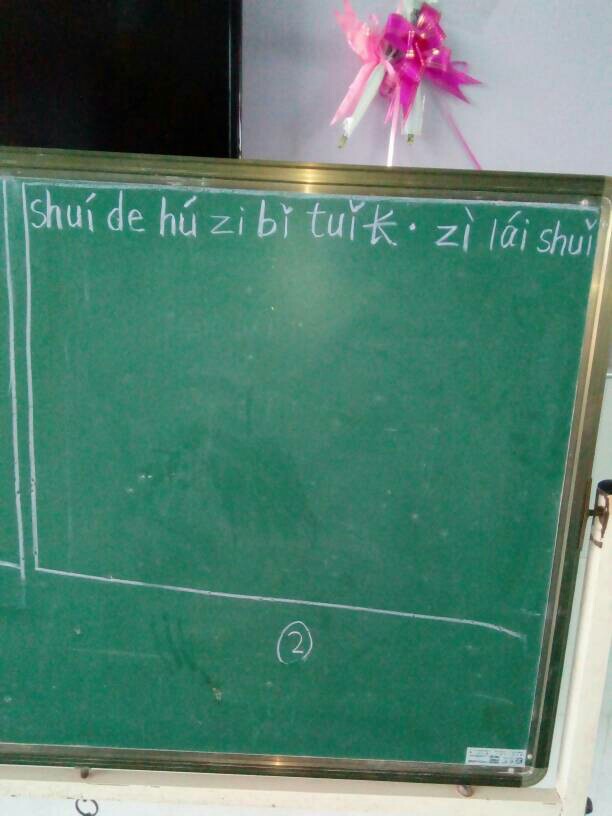 shuí de hú zi bǐ tuǐ长·zì lái shuǐ
②